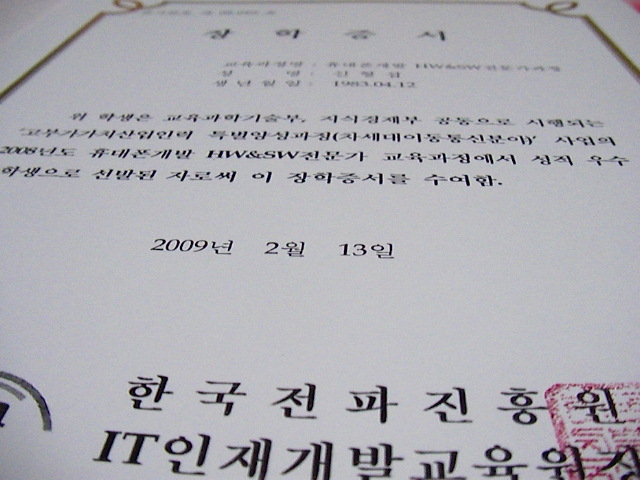 장 학 증 서
교육과정명 : 휴대폰개발 HW&SW전문가과정
성 명 :
생 년 월 일 : 1983.04.12
위 학생은 교육과학기술부, 지식경제부 공동으로 시행되는
'고부가가치산업인력 특별양성과정(차세대이동통신분야)' 사업의
2008년도 휴대폰개발 HW&SW전문가 교육과정에서 성적 우수
학생으로 선발된 자로써 이 장학증서를 수여함.
2009년 2월 13일
한국전파진흥원
IT인재개발교육원장